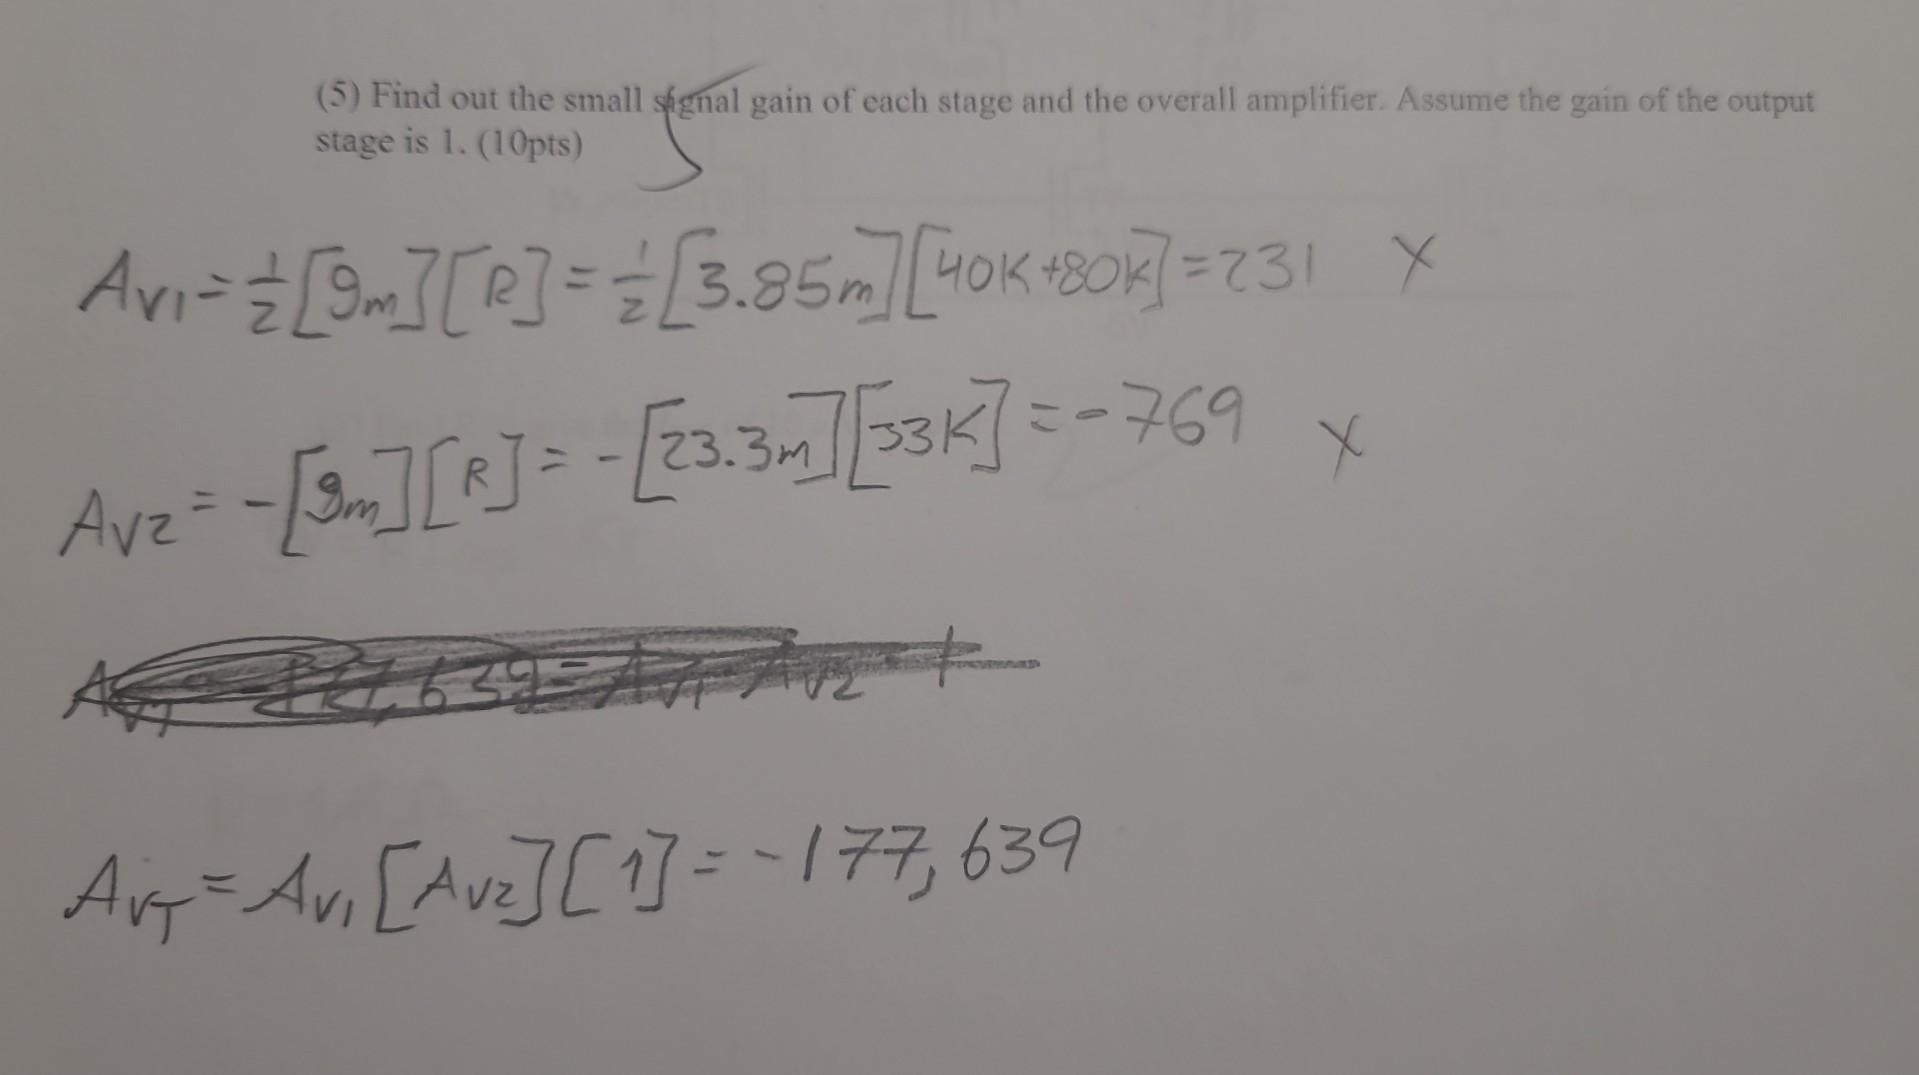 (5) Find out the small signal gain of each stage and the overall amplifier. Assume the gain of the output
stage is 1. (10pts)
5
Av1 = 1/2 [gm][R] = 1/2 [3.85m][40K+80K] = 231 X
Av2 = -[gm][R] = -[23.3m][33K] = -769 X
,639 = Av1 Av2
AvT = Av1 [Av2][1] = -177,639